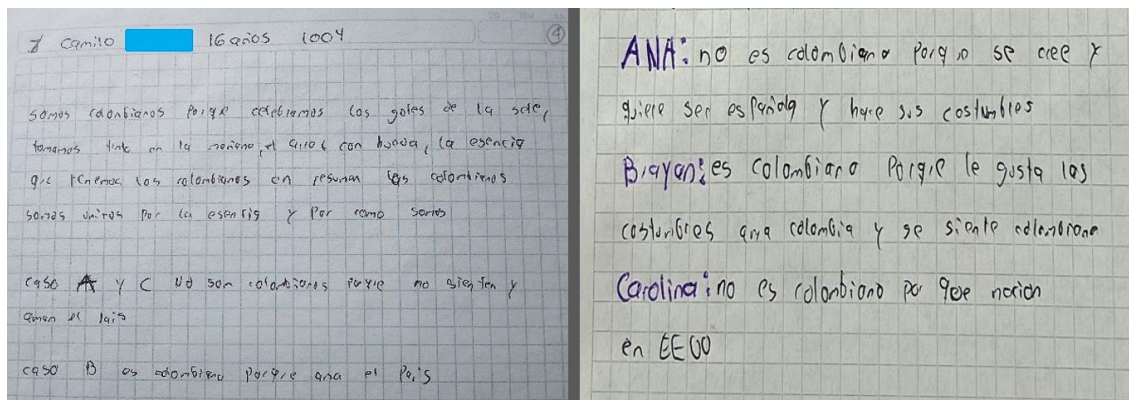 Camilo 16 años 1004
4
somos colonbianos porqe celebramos los goles de la sele,
tomamos tinto en la mañana, el arros con huevo, la esencia
qie tenemos los colombianos en resumen los colombianos
somos unicos por la esencia y por como somos
caso A y C no son colombianos porqe no sienten y
aman el pais
caso B es colombiano porqre ama el pais
ANA: no es colombiana porq no se cree y
quiere ser española y hace sus costumbres
Brayan: es colombiano porqie le gusta las
costumbres ama colombia y se siente colombiano
Carolina: no es colombiana por qoe nacion
en EEUU